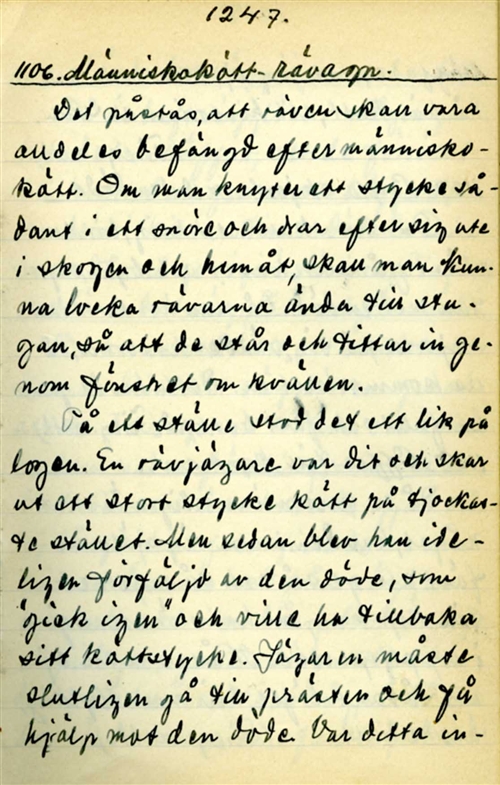 1247.
1106. Människokött-rävagn.
Det påstås, att räven skall vara
alldeles befängd efter människo-
kött. Om man knyter ett stycke så-
dant i ett snöre och drar efter sig ute
i skogen och hemåt, skall man kun-
na locka rävarna ända till stu-
gan, så att de står och tittar in ge-
nom fönstret om kvällen.
På ett ställe stod det ett lik på
logen. En rävjägare var dit och skar
ut ett stort stycke kött på tjockas-
te stället. Men sedan blev han ide-
ligen förföljd av den döde, som
"gick igen" och ville ha tillbaka
sitt köttstycke. Jägaren måste
slutligen gå till prästen och få
hjälp mot den döde. Var detta in-